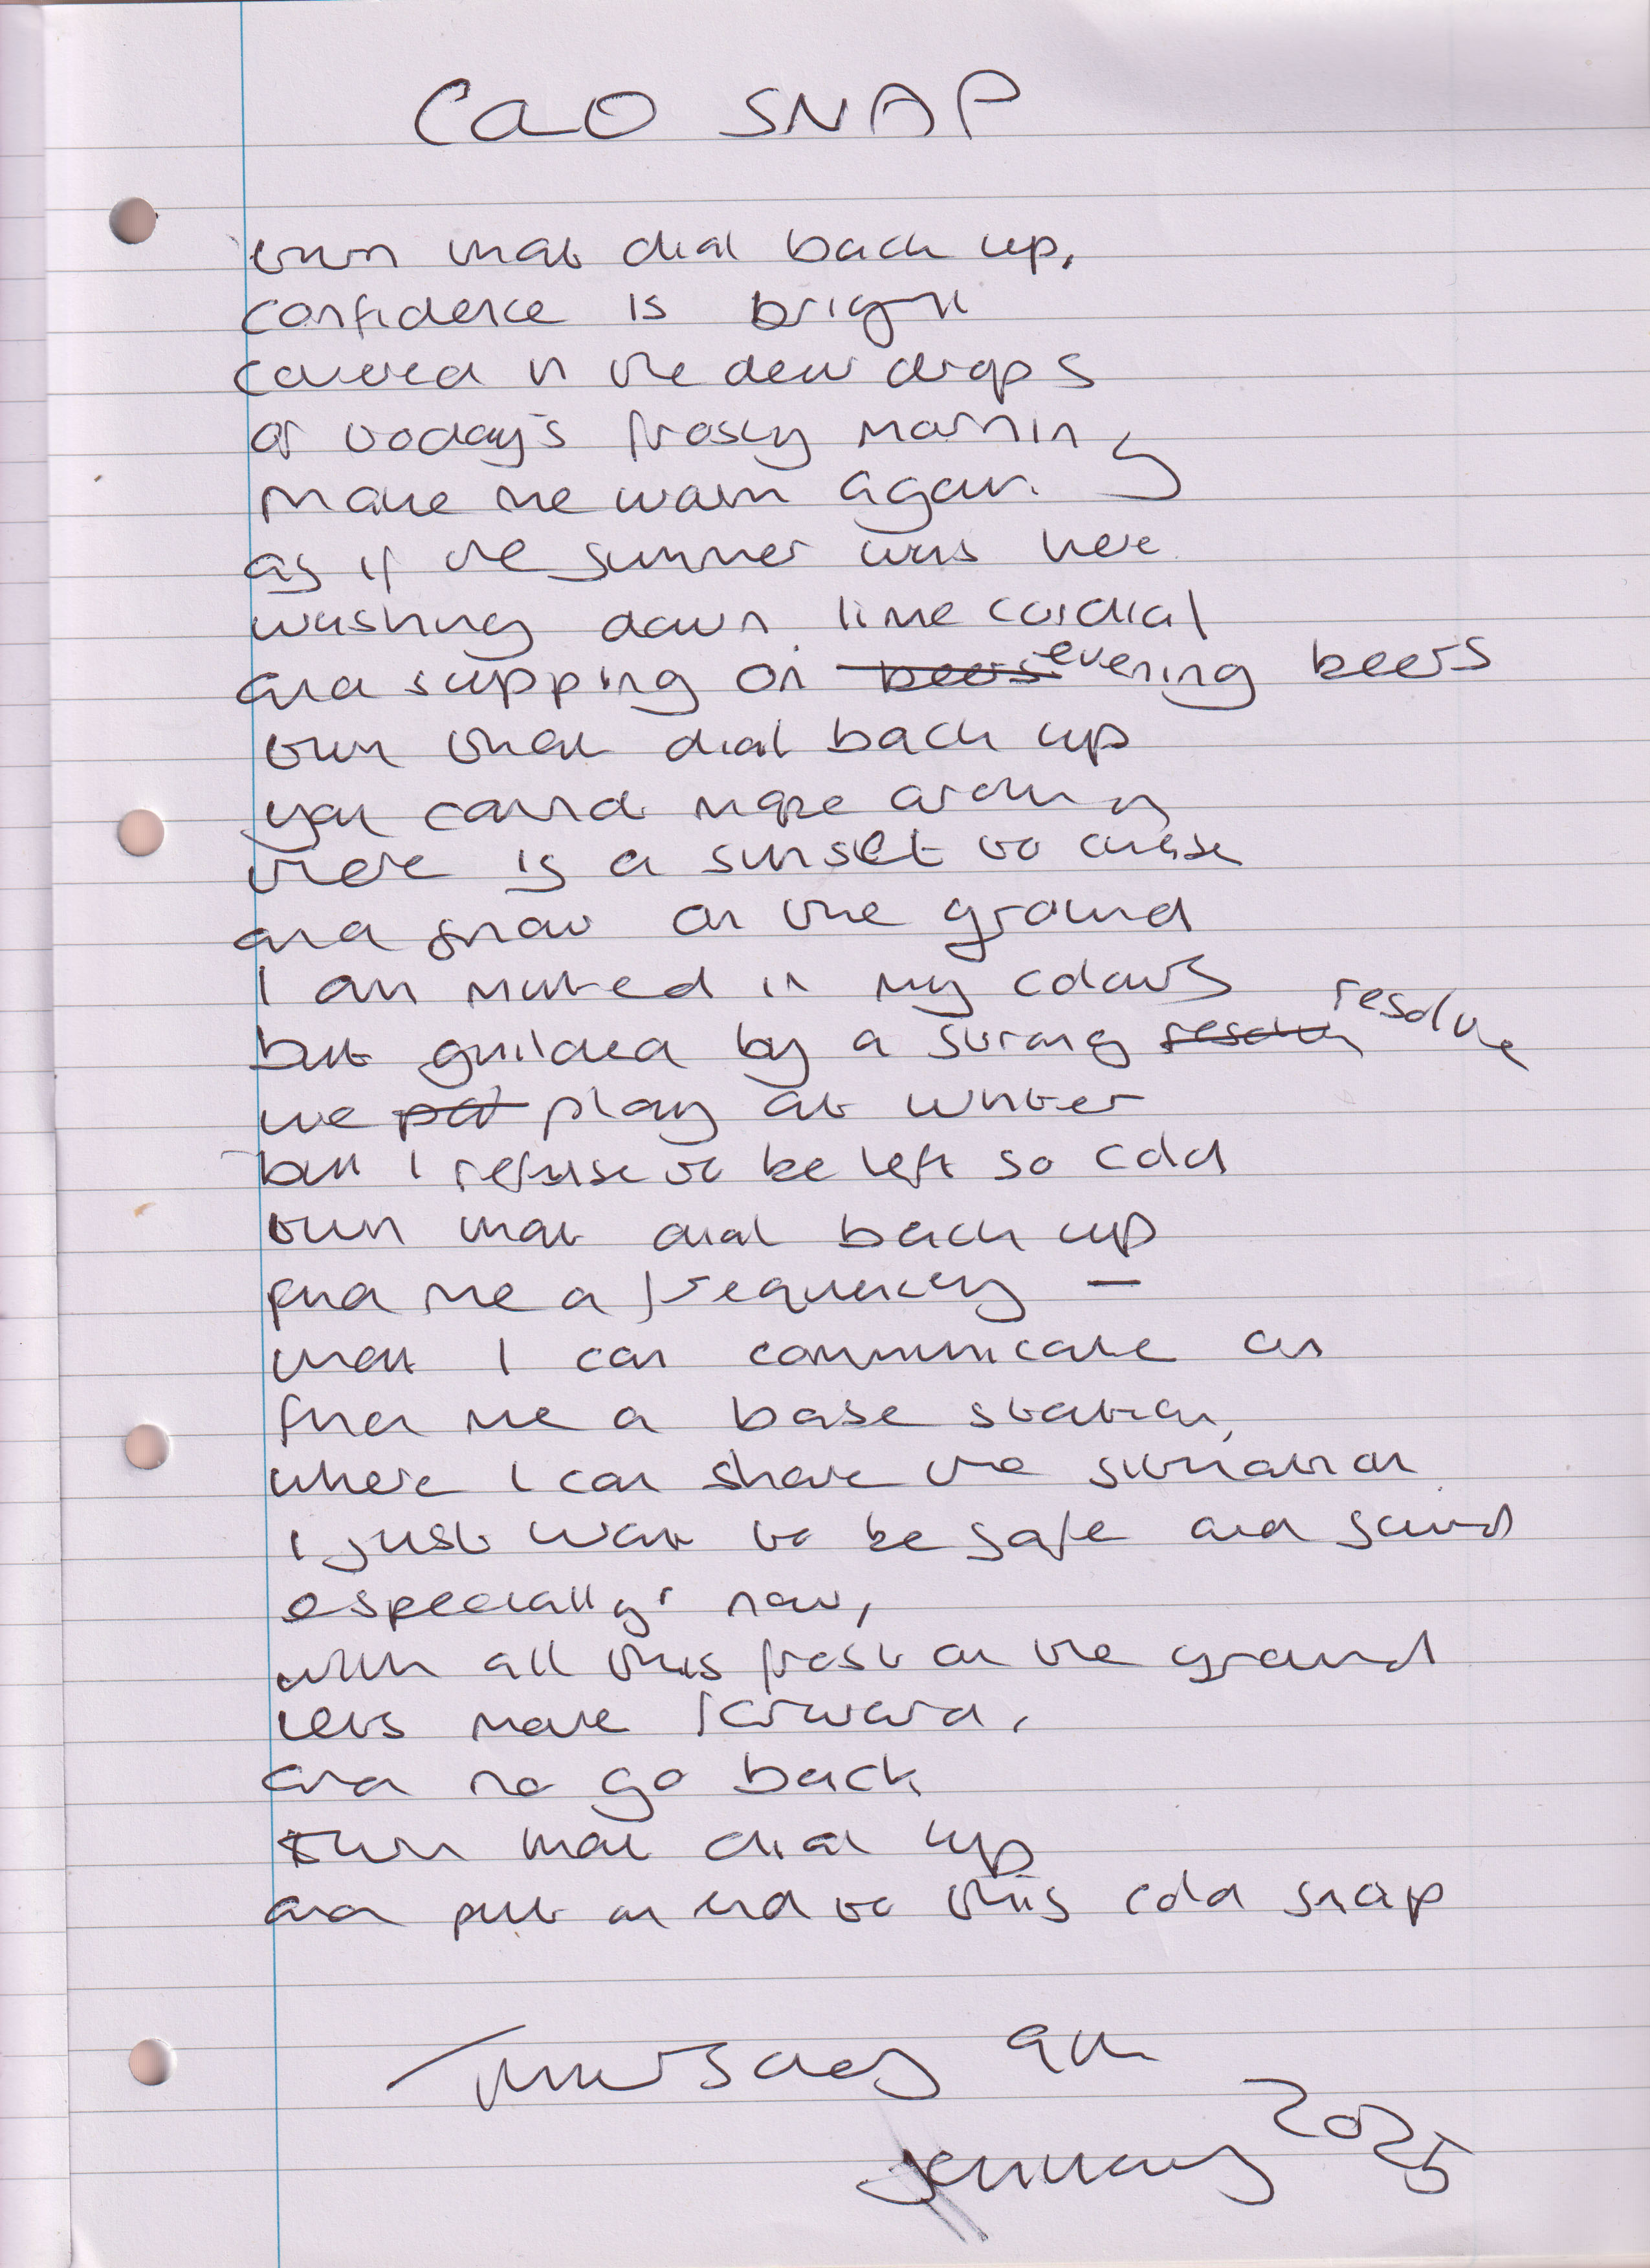 COLD SNAP
turn that dial back up,
confidence is bright
covered in the dew drops
of today's frosty morning
make me warm again.
as if the summer was here
washing down lime cordial
and supping on beers evening beers
turn that dial back up
you could mope around
there is a sunset to chase
and snow on the ground
I am muted in my colours
but guilded by a strong resolve
we play at winter
but I refuse to be left so cold
turn that dial back up
find me a frequency –
that I can communicate on
find me a base station,
where I can share the situation
I just want to be safe and sound
especially now,
with all this frost on the ground
lets move forward,
and no go back
turn that dial up
and put an end to this cold snap
Thursday 9th
January 2025